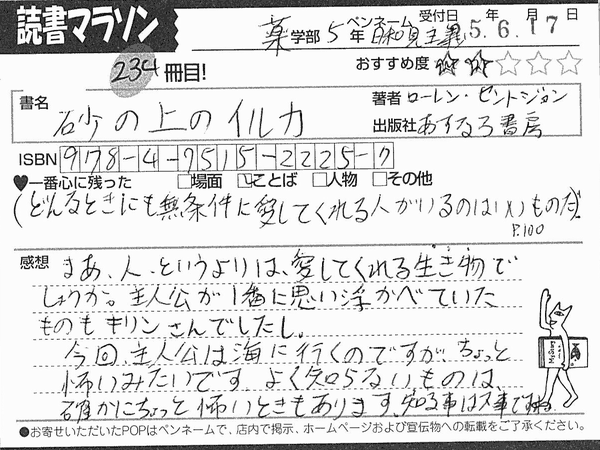 読書マラソン
薬学部 5年 ペンネーム 日和見主義 受付日 5年6月17日
234冊目! おすすめ度 ★★☆☆☆
書名 砂の上のイルカ
著者 ローレン・セントジョン
出版社 あすなろ書房
ISBN 978-4-7515-2225-7
♥一番心に残った □場面 ☑ことば □人物 □その他
(どんなときにも無条件に愛してくれる人がいるのはいいものだ)
P.100
感想 まあ、人、というよりは、愛してくれる生き物で
しょうか。主人公が1番に思い浮かべていた
ものもキリンさんでしたし。
今回、主人公は海に行くのですが、ちょっと
怖いみたいです。よく知らないものは、
確かにちょっと怖いときもあります。知る事は大事ですね。
●お寄せいただいたPOPはペンネームで、店内で掲示、ホームページおよび宣伝物への転載をご了承ください。